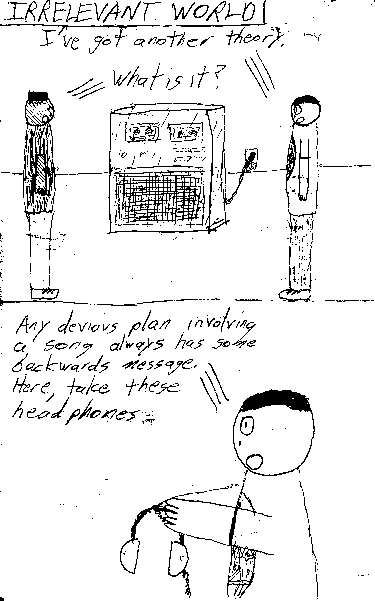 IRRELEVANT WORLD
I've got another theory.
What is it?
Any devious plan involving
a song always has some
backwards message.
Here, take these
headphones.